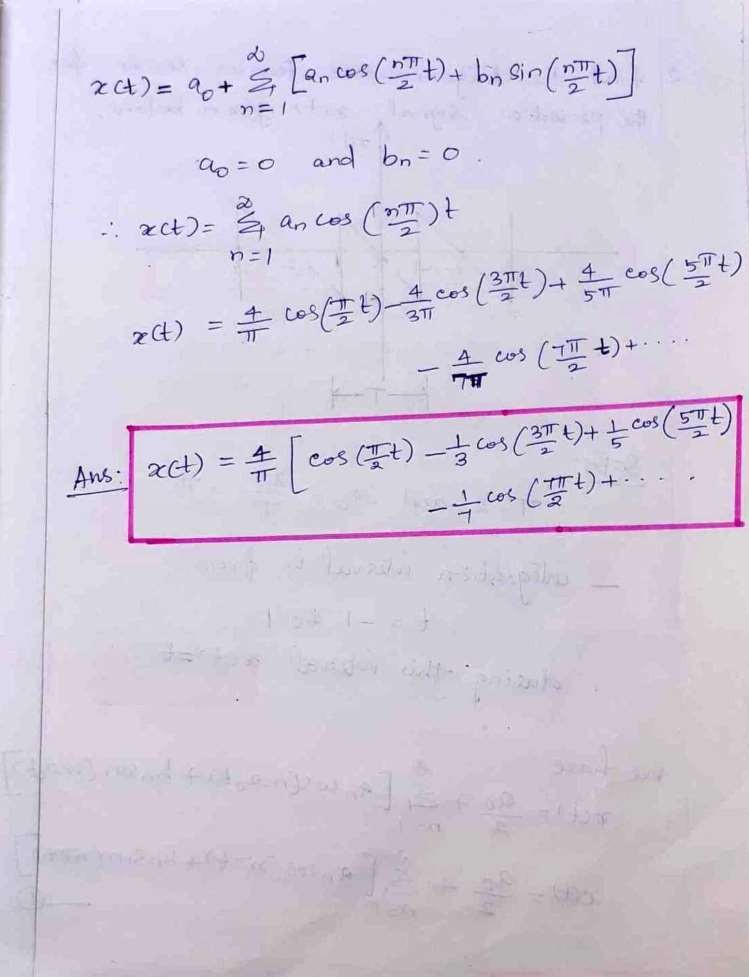 x(t) = a₀ + ∞ Σ n=1 [aₙ cos(nπ/2 t) + bₙ sin(nπ/2 t)]
a₀ = 0 and bₙ = 0.
∴ x(t) = ∞ Σ n=1 aₙ cos(nπ/2)t
x(t) = 4/π cos(π/2 t) - 4/3π cos(3πt/2) + 4/5π cos(5π/2 t)
- 4/7π cos(7π/2 t) + ....
Ans: x(t) = 4/π [cos(π/2 t) - 1/3 cos(3π/2 t) + 1/5 cos(5π/2 t)
- 1/7 cos(7π/2 t) + .....